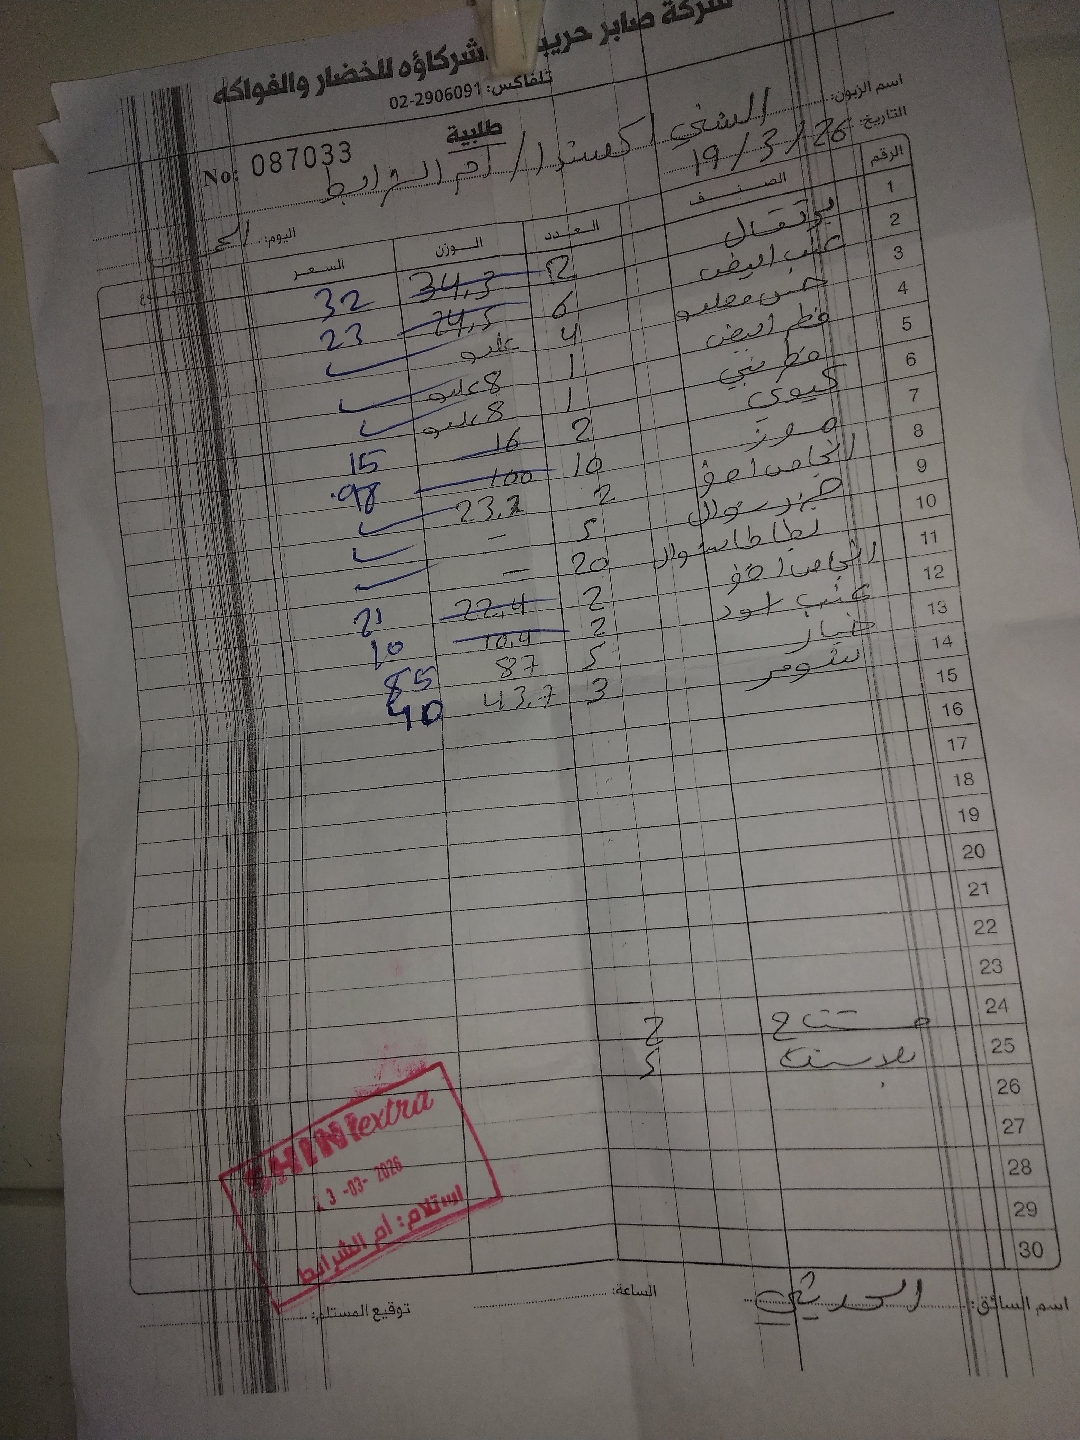 شركة صابر حريب وشركاؤه للخضار والفواكه
تلفاكس: 02-2906091
طلبية
No: 087033
اسم الزبون: الشني اكسترا / ام الشرايط
التاريخ: 19/3/26
اليوم:
الرقم الصنف العدد الوزن السعر
1 برتقال 12 34,3 32
2 عنب ابيض 6 24,5 23
3 4 علبه ✓
4 فطر ابيض 1 8 علبه ✓
5 فطر بني 1 8 علبه ✓
6 كيوي 2 16 15
7 موز 10 100 98
8 2 23,2 ✓
9 5 – ✓
10 بطاطا 20 – ✓
11 2 22,4 21
12 عنب اسود 2 10,4 10
13 خيار 5 87 85
14 شومر 3 43,7 40
15
16
17
18
19
20
21
22
23
24 مشتاح 2
25 بلاستيك 5
26
27
28
29
30
SHINI extra
3 -03- 2026
استلام: أم الشرايط
اسم السائق:
الساعة:
توقيع المستلم: